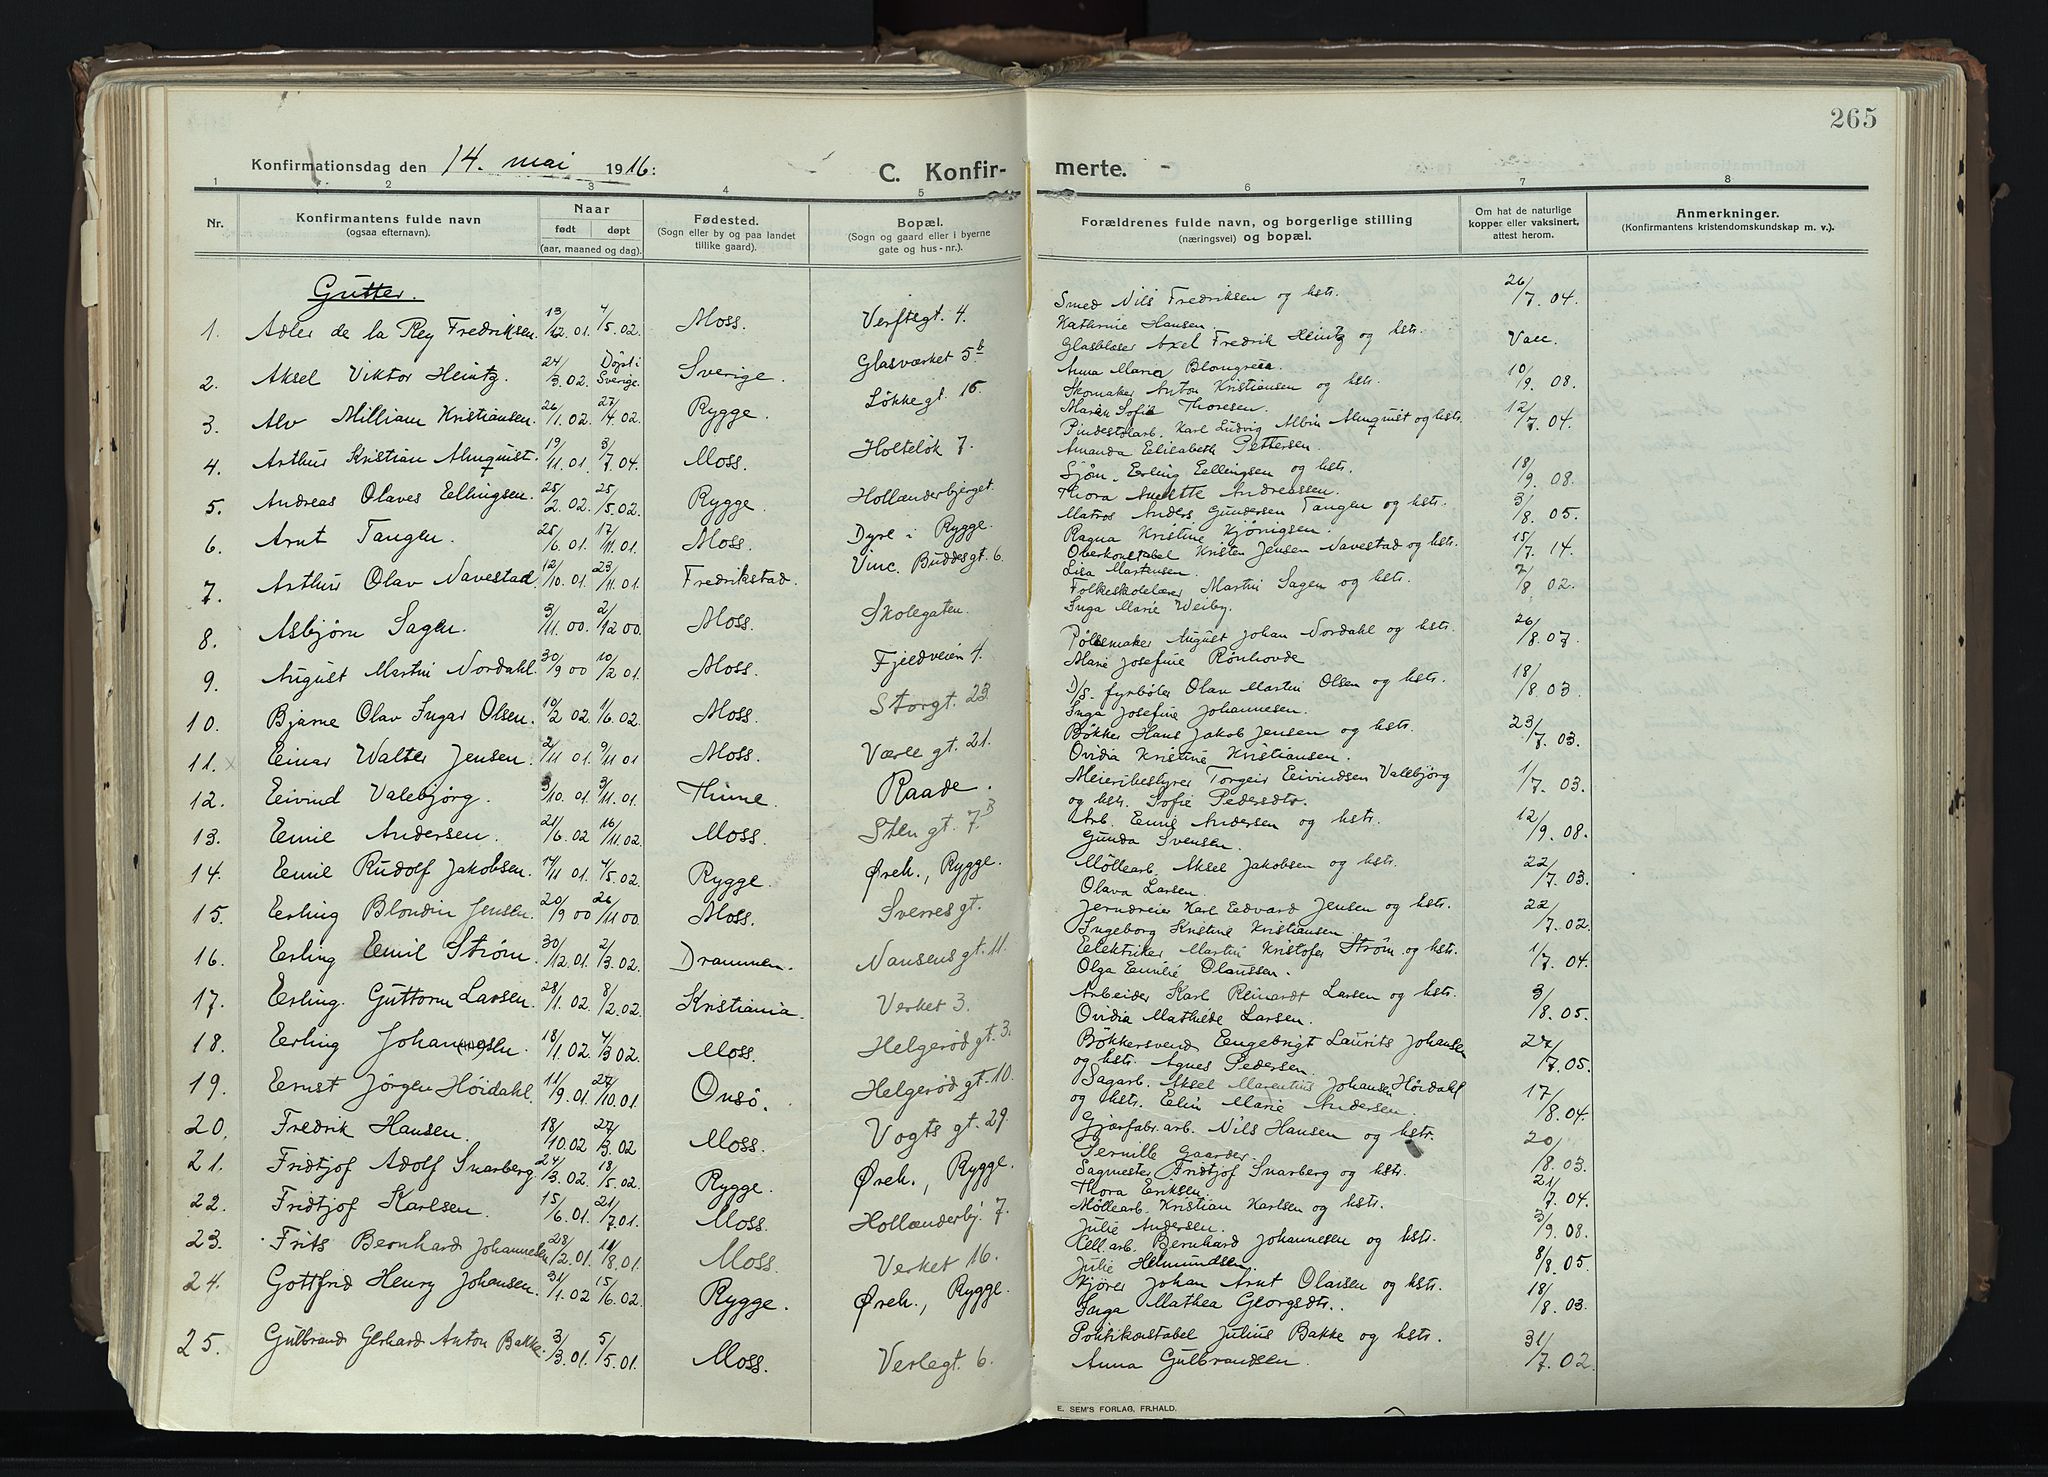 265
Konfirmationsdag den 14. mai 1916:
C. Konfirmerte.
1 2 3 4 5 6 7 8
Nr. Konfirmantens fulde navn (ogsaa efternavn). Naar født døpt (aar, maaned og dag). Fødested. (Sogn eller by og paa landet tillike gaard). Bopæl. (Sogn og gaard eller i byerne gate og hus-nr.). Forældrenes fulde navn, og borgerlige stilling (næringsvei) og bopæl. Om hat de naturlige kopper eller vaksinert, attest herom. Anmerkninger. (Konfirmantens kristendomskundskap m. v.).
Gutter.
1. Adler de la Rey Fredriksen. 13/12.01. 4/5.02. Moss. Verftsgt. 4. Smed Nils Fredriksen og hstr. 26/7.04.
Kathrine Hansen.
2. Aksel Viktor Heintz. 24/3.02. Døpt i Sverige. Sverige. Glasværket 5b Glasblåser Axel Fredrik Heintz og hstr. Vacc.
Anna Maria Blomgreen.
3. Alv William Kristiansen. 26/1.02. 27/4.02. Rygge. Løkkegt. 15. Skomaker Anton Kristiansen og hstr. 10/9.08.
Maren Sofie Thoresen.
4. Arthur Kristian Almquist. 19/11.01. 3/7.04. Moss. Holteløk 7. Pindestolarb. Karl Ludvig Albin Almquist og hstr. 12/7.04.
Amanda Elisabeth Pettersen.
5. Andreas Olaves Ellingsen. 25/2.02. 25/5.02. Rygge. Hollænderbjerget. Sjøm. Erling Ellingsen og hstr. 18/9.08.
Thora Anette Andreassen.
6. Arnt Tangen. 25/6.01. 17/11.01. Moss. Dyre i Rygge. Matros Anders Gundersen Tangen og hstr. 3/8.05.
Ragna Kristine Kjønigsen.
7. Arthur Olav Navestad. 12/10.01. 23/11.01. Fredrikstad. Vinc. Buddesgt. 6. Overkonstabel Kristen Jensen Navestad og hstr. 15/7.14.
Lisa Martensen.
8. Asbjørn Sagen. 3/11.00. 2/12.00. Moss. Skolegaten. Folkeskolelærer Martin Sagen og hstr. 7/8.02.
Inga Marie Weiby.
9. August Martin Nordahl. 30/9.00 10/2.01. Moss. Fjeldveien 4. Pølsemaker August Johan Nordahl og hstr. 26/8.07.
Marie Josefine Rønhovde
10. Bjarne Olav Ingar Olsen. 10/2.02. 1/6.02. Moss. Storgt. 23 D/S. fyrbøter Olav Martin Olsen og hstr. 18/8.03.
Inga Josefine Johannesen.
11. x Einar Walter Jensen. 2/11.01. 9/11.01 Moss. Værle gt. 21. Bøkker Hans Jakob Jensen og hstr. 23/7.03.
Ovidia Kristine Kristiansen.
12. Eivind Valebjørg. 3/10.01. 3/11.01. Thune. Raade. Meieribestyrer Torgeir Eivindsen Valebjörg 1/7.03.
og hstr. Sofie Pedersdtr.
13. Emil Andersen. 21/6.02 16/11.02. Moss. Sten gt. 7B Arb. Emil Andersen og hstr. 12/9.08.
Gunda Svensen.
14. Emil Rudolf Jakobsen. 14/11.01. 4/5.02. Rygge. Øreh., Rygge. Møllearb. Aksel Jakobsen og hstr. 22/7.03.
Olava Larsen.
15. Erling Blondin Jensen. 20/9.00 26/11.00. Moss. Sverresgt. Jerndreier Karl Edvard Jensen og hstr. 22/7.02.
Ingeborg Kristine Kristiansen.
16. Erling Emil Strøm. 30/12.01. 2/3.02. Drammen. Nansensgt. 11. Elektriker Martin Kristofer Strøm og hstr. 1/7.04.
Olga Emilie Olaussen.
17. Erling Guttorm Larsen. 28/1.02. 8/2.02. Kristiania. Verket 3. Arbeider Karl Reinardt Larsen og hstr. 3/8.05.
Ovidia Mathilde Larsen.
18. Erling Johannesen. 18/1.02. 4/3.02. Moss. Helgerød gt. 3. Bøkkersvend Engebrigt Laurits Johansen 27/7.05.
og hstr. Agnes Pedersen.
19. Ernst Jørgen Höidahl. 11/9.01. 27/10.01. Onsö. Helgerød gt. 10. Sagarb. Aksel Marentius Johansen Höidahl 17/8.04.
og hstr. Elin Marie Andersen.
20. Fredrik Hansen. 18/10.02 27/3.02 Moss. Vogts gt. 29. Gjærfabr. arb. Nils Hansen og hstr. 20/8.03.
Pernille Gaarder.
21. Fridtjof Adolf Snarberg 24/3.02. 18/5.02. Rygge. Øreh., Rygge. Sagmester Fridtjof Snarberg og hstr. 21/7.04.
Thora Eriksen.
22. Fridtjof Karlsen. 15/6.01. 21/7.01. Moss. Hollænderbj. 7. Møllearb. Kristian Karlsen og hstr. 3/9.08.
Julie Andersen.
23. Frits Bernhard Johannesen 28/2.01. 11/8.01. Moss. Verket 16. Cell. arb. Bernhard Johannesen og hstr. 8/8.05.
Julie Helmundsen.
24. Gottfrid Henry Johansen. 31/1.02 15/6.02. Rygge. Øreh., Rygge. Kjører Johan Arnt Olavsen og hstr. 18/8.03.
Inga Mathea Georgsdtr.
25. x Gulbrand Gerhard Anton Bakke. 3/3.01. 5/5.01. Moss. Verlegt. 6. Politikonstabel Julius Bakke og hstr. 31/7.02.
Anna Gulbrandsen.
E. SEM'S FORLAG, FR.HALD.